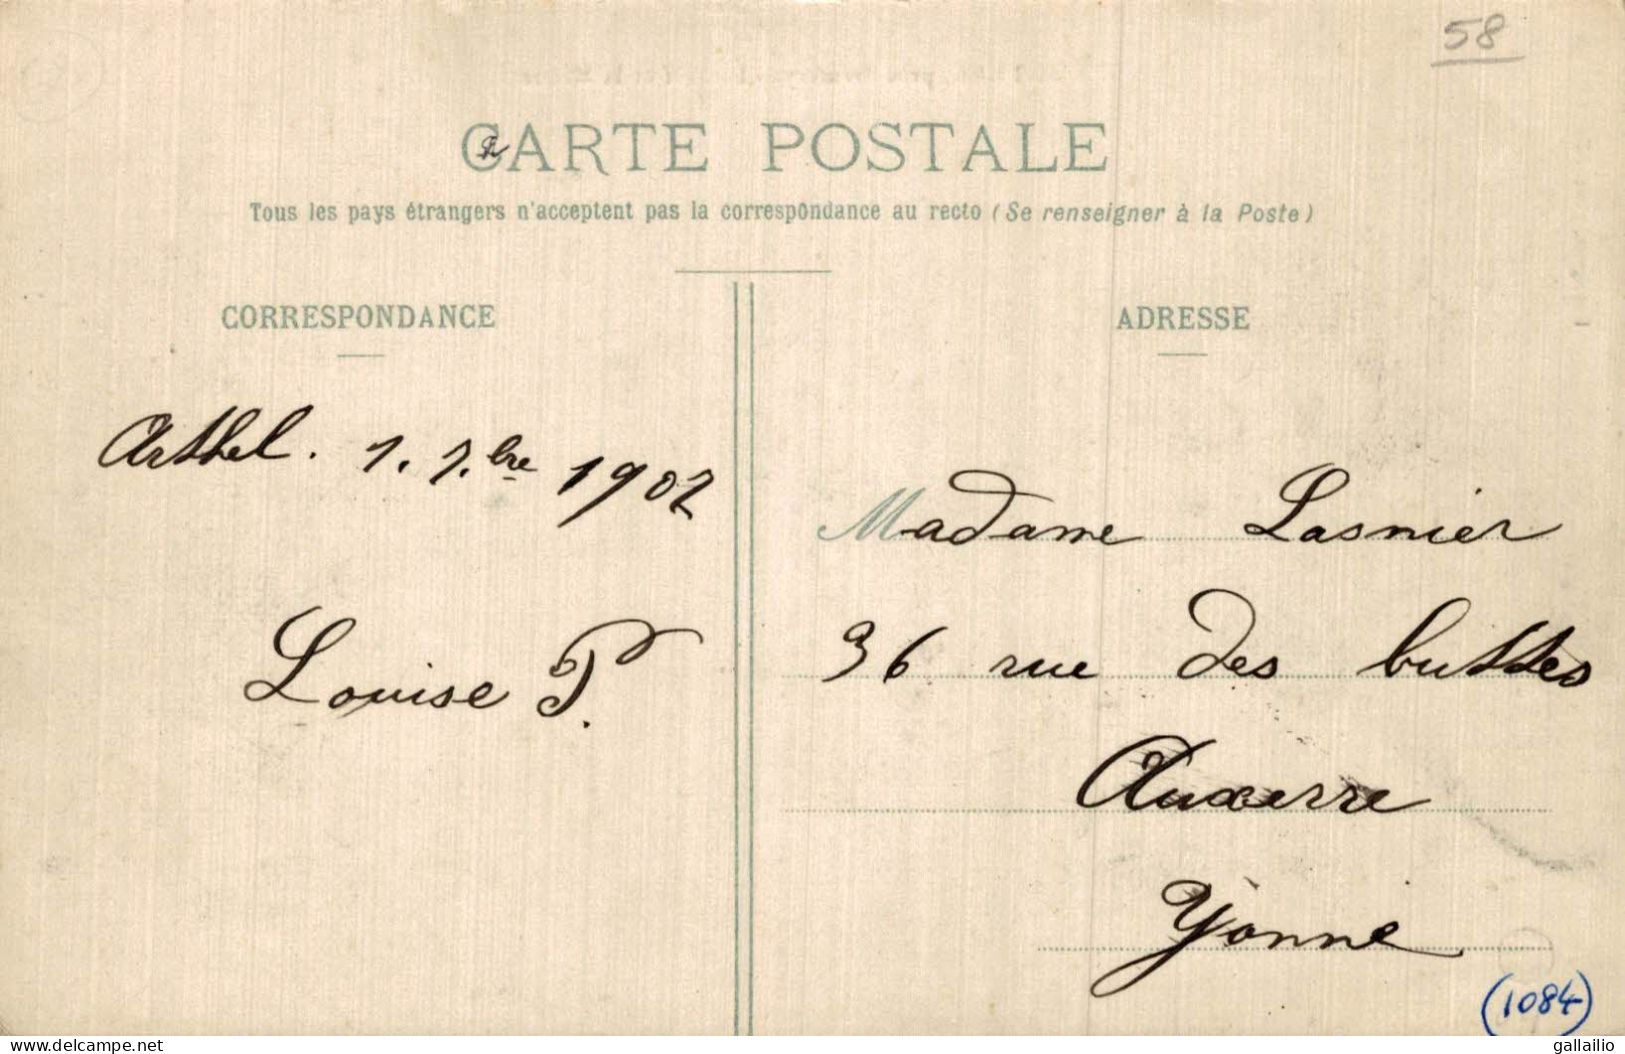 58
CARTE POSTALE
Tous les pays étrangers n'acceptent pas la correspondance au recto (Se renseigner à la Poste)
CORRESPONDANCE
Arthel. 1. 7.bre 1902
Louise P.
ADRESSE
Madame Lasnier
36 rue des buttes
Auxerre
Yonne
(1084)
delcampe.net
gallailio